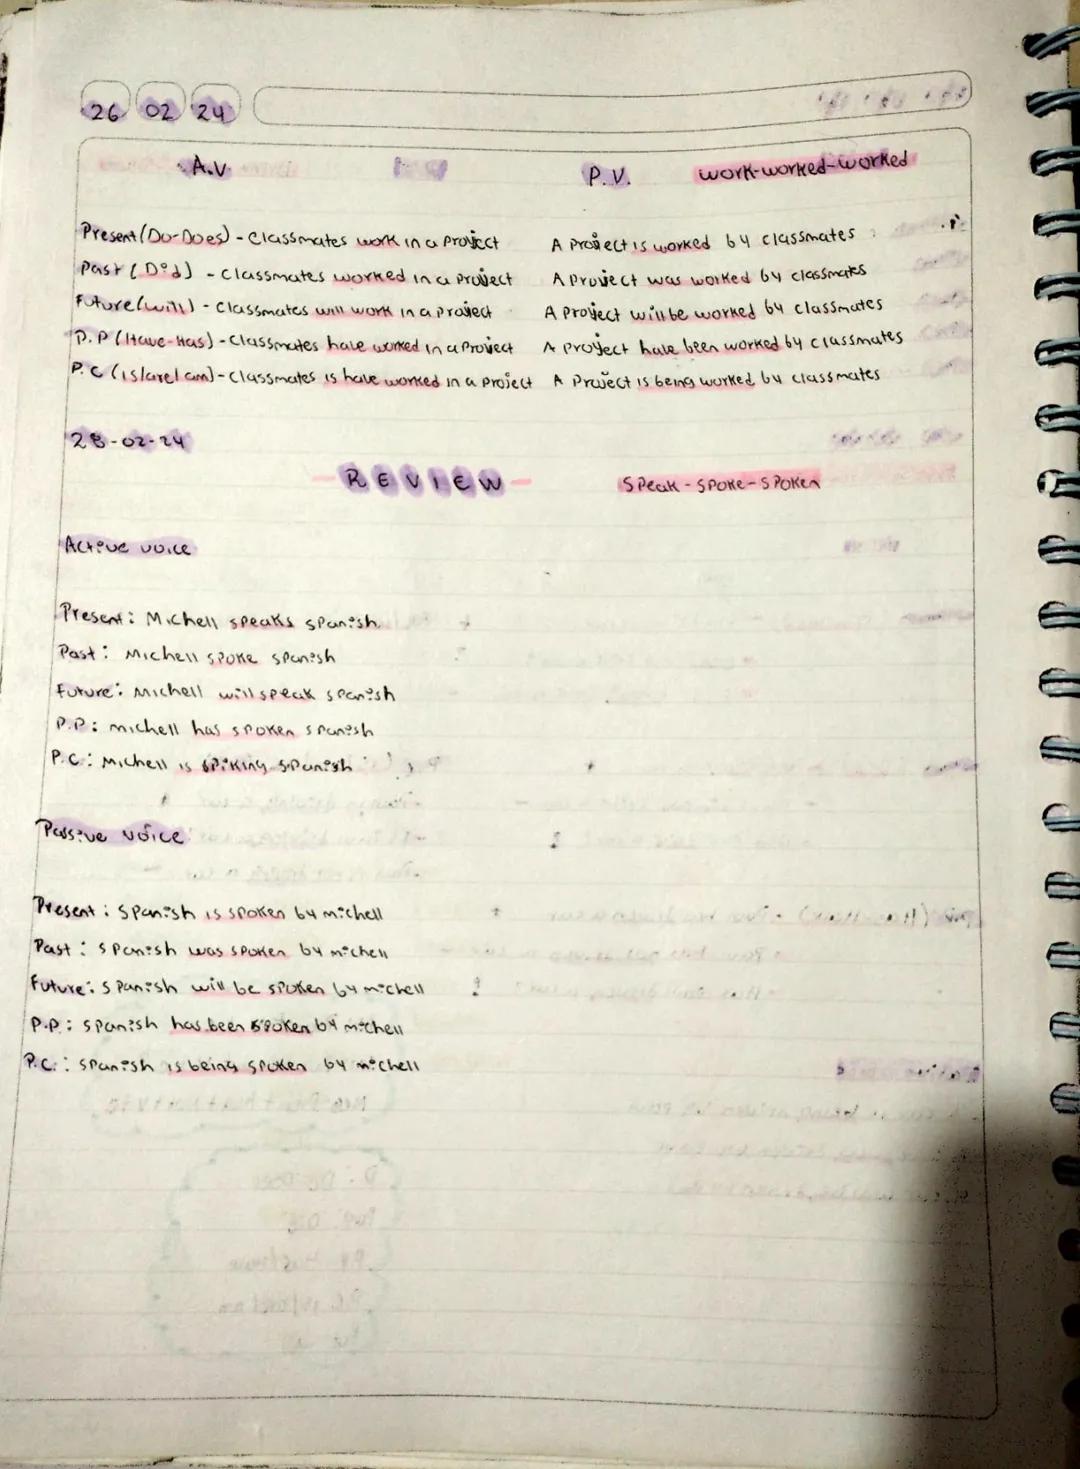 26 02 24
A.V. P.V. work-worked-worked
Present (Do-Does) - Classmates work in a Project A Project is worked by classmates
Past (Did) - Classmates worked in a Project A Project was worked by classmates
Future (will) - Classmates will work in a Project A Project will be worked by classmates
P.P (Have-Has) - Classmates have worked in a Project A Project have been worked by classmates
P.C (is/are/am) - Classmates is have worked in a Project A Project is being worked by classmates
28-02-24
- REVIEW - Speak - Spoke - Spoken
Active voice
Present: Michell speaks spanish
Past: Michell spoke spanish
Future: Michell will speak spanish
P.P: michell has spoken spanish
P.C: Michell is spiking spanish
Passive voice
Present: Spanish is spoken by michell
Past: Spanish was spoken by michell
Future: Spanish will be spoken by michell
P.P.: Spanish has been spoken by michell
P.C.: Spanish is being spoken by michell